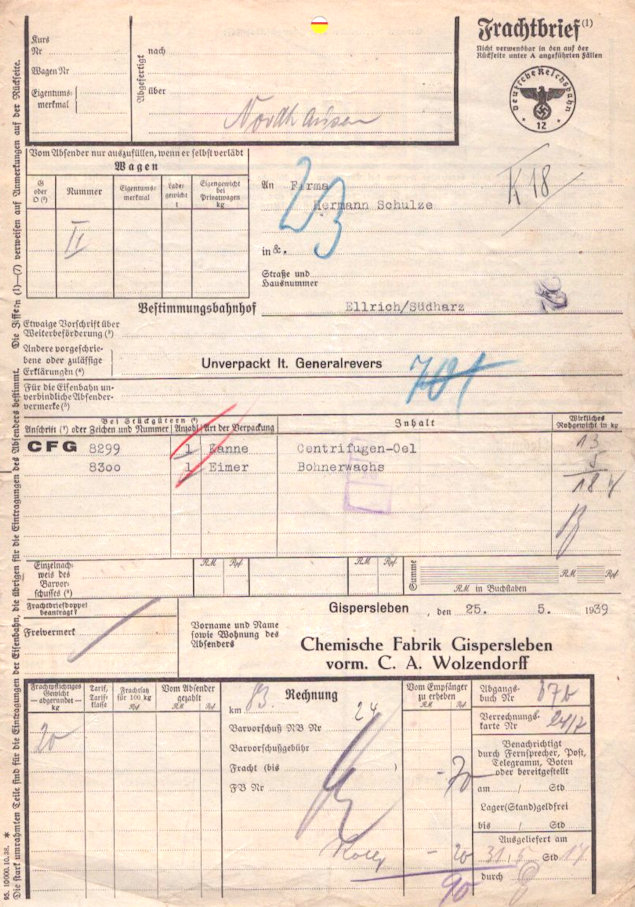 Frachtbrief (1)
Nicht verwendbar in den auf der
Rückseite unter A angeführten Fällen
Deutsche Reichsbahn
* 12 *
Kurs
Nr
Wagen Nr
Eigentums-
merkmal
Abgefertigt
nach
über
Nordhausen
Vom Absender nur auszufüllen, wenn er selbst verlädt
Wagen
G oder O (2)
Nummer
Eigentums-
merkmal
Lade-
gewicht
t
Eigengewicht
bei
Privatwagen
kg
II
An Firma
Hermann Schulze
23
K 18
in &.
Straße und
Hausnummer
Bestimmungsbahnhof
Ellrich/Südharz
Etwaige Vorschrift über
Weiterbeförderung (3)
Andere vorgeschrie-
bene oder zulässige
Erklärungen (4)
Unverpackt lt. Generalrevers
701
Für die Eisenbahn un-
verbindliche Absender-
vermerke (5)
Bei Stückgütern (6)
Anschrift (7) oder Zeichen und Nummer
Anzahl
Art der Verpackung
Inhalt
Wirkliches
Rohgewicht in kg
CFG 8299 1 Kanne Centrifugen-Oel 13
8300 1 Eimer Bohnerwachs 5
18
Einzelnach-
weis des
Barvor-
schusses (6)
RM Rpf
RM Rpf
Summe
RM Rpf
RM in Buchstaben
Frachtbriefdoppel
beantragt?
Freivermerk
Gispersleben, den 25. 5. 1939
Vorname und Name
sowie Wohnung des
Absenders
Chemische Fabrik Gispersleben
vorm. C. A. Wolzendorff
Frachtpflichtiges
Gewicht
— abgerundet —
kg
Tarif,
Tarif-
klasse
Frachtsatz
für 100 kg
Rpf
Vom Absender
gezahlt
RM Rpf
20
Rechnung
km
24
Barvorschuß NB Nr
Barvorschußgebühr
Fracht (bis )
FB Nr
Vom Empfänger
zu erheben
RM Rpf
- 70
- 20
90
Abgangs-
buch Nr
Verrechnungs-
karte Nr
Benachrichtigt
durch Fernsprecher, Post,
Telegramm, Boten
oder bereitgestellt
am / Std
Lager(Stand)geldfrei
bis / Std
Ausgeliefert am
31/5 Std 17
durch
95. 10000. 10. 38. *
Die stark umrahmten Teile sind für die Eintragungen der Eisenbahn, die übrigen für die Eintragungen des Absenders bestimmt. Die Ziffern (1)—(7) verweisen auf Anmerkungen auf der Rückseite.